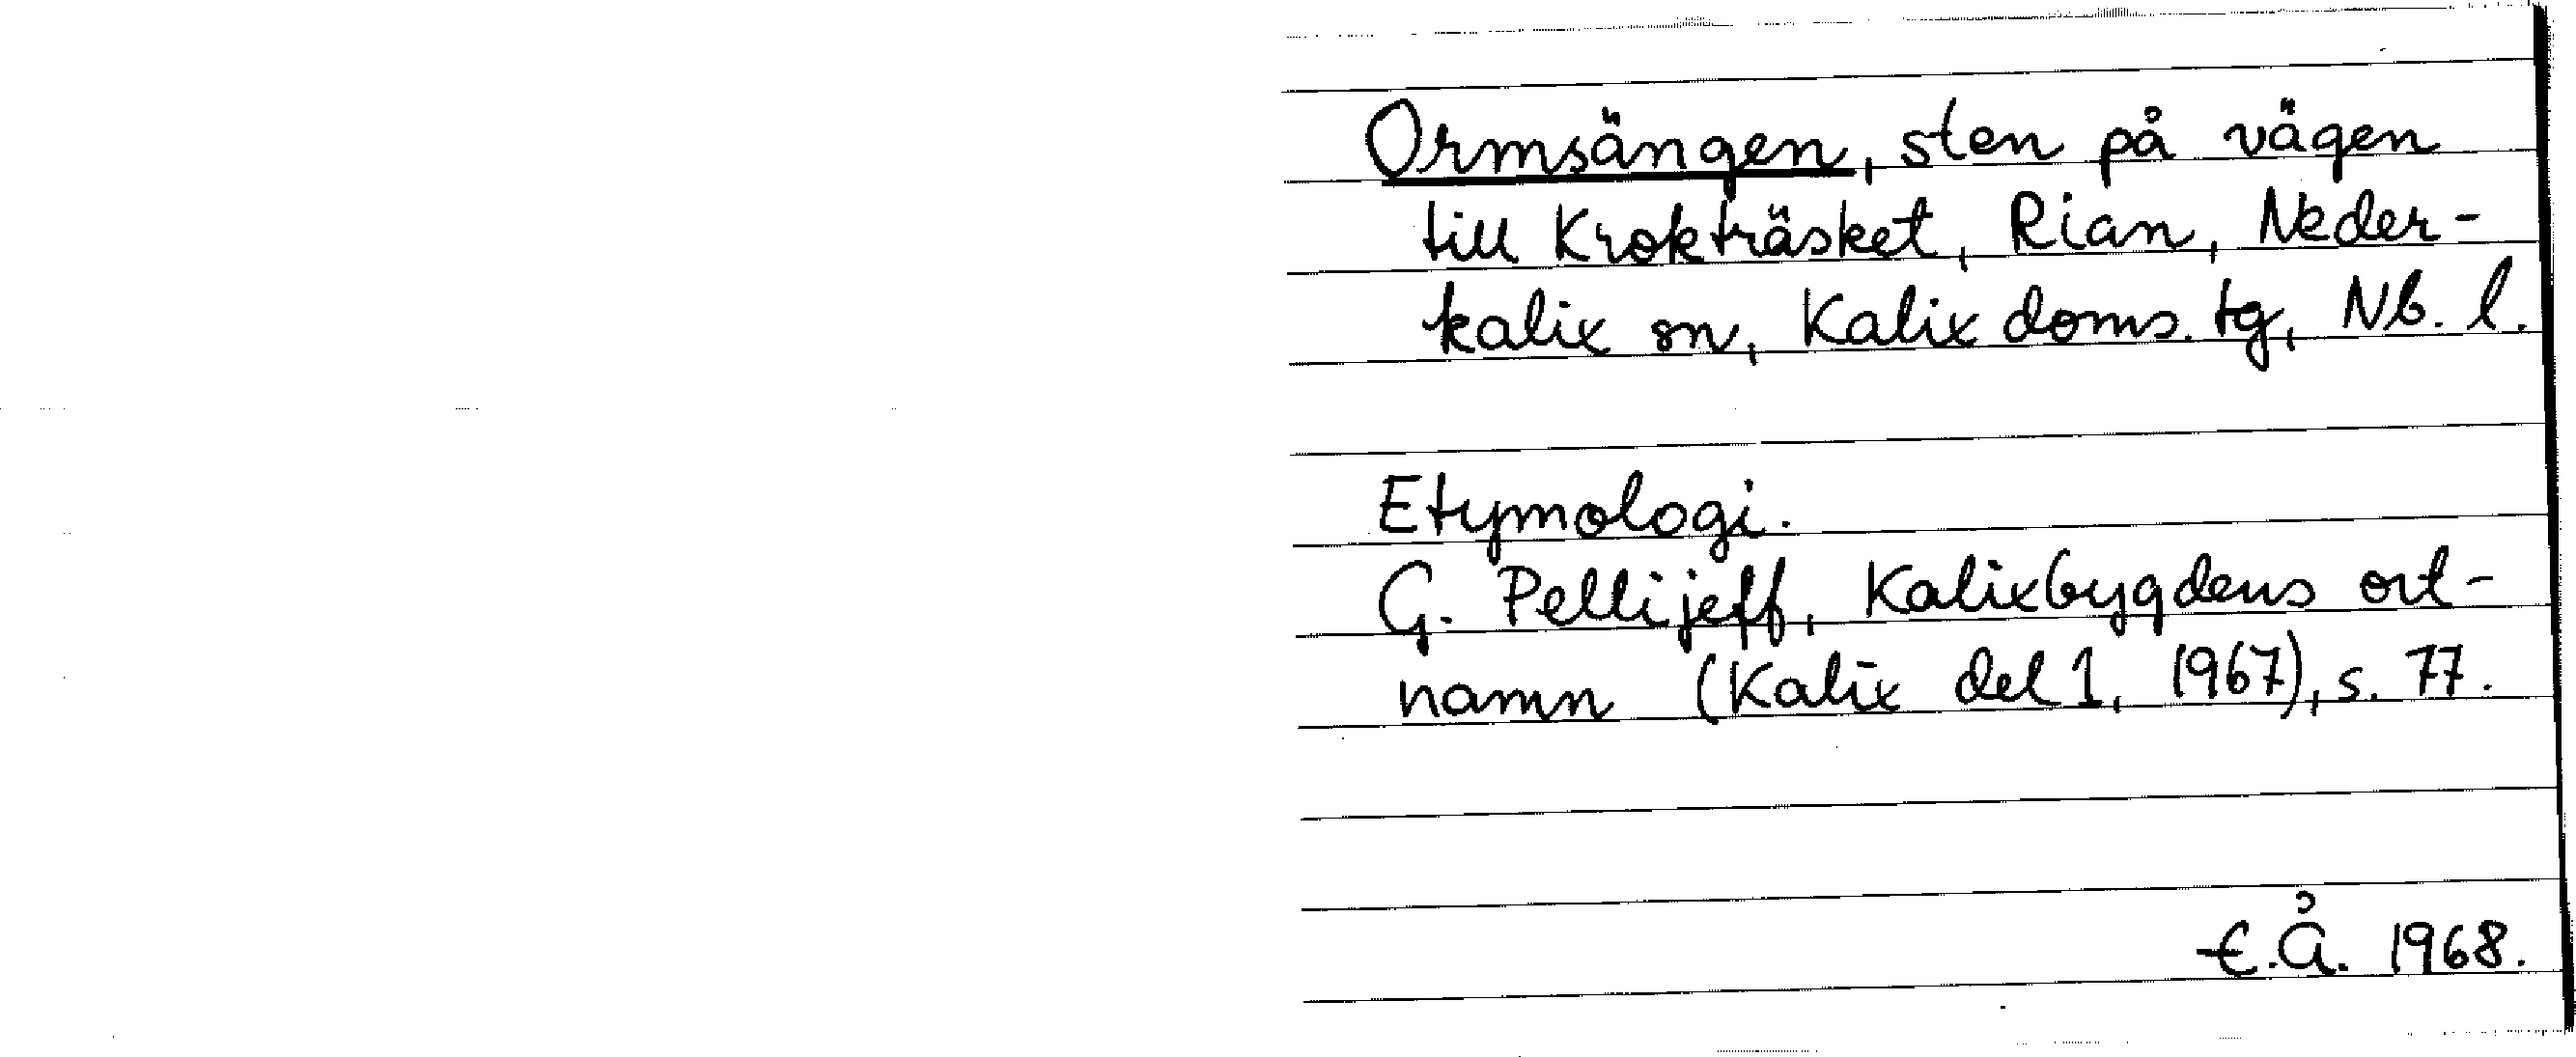 Ormsängen, sten på vägen
till Krokträsket, Rian, Neder-
kalix sn, Kalix doms. tg, Nb. l.
Etymologi.
G. Pellijeff, Kalixbygdens ort-
namn (Kalix del 1, 1967), s. 77.
E.Å. 1968.